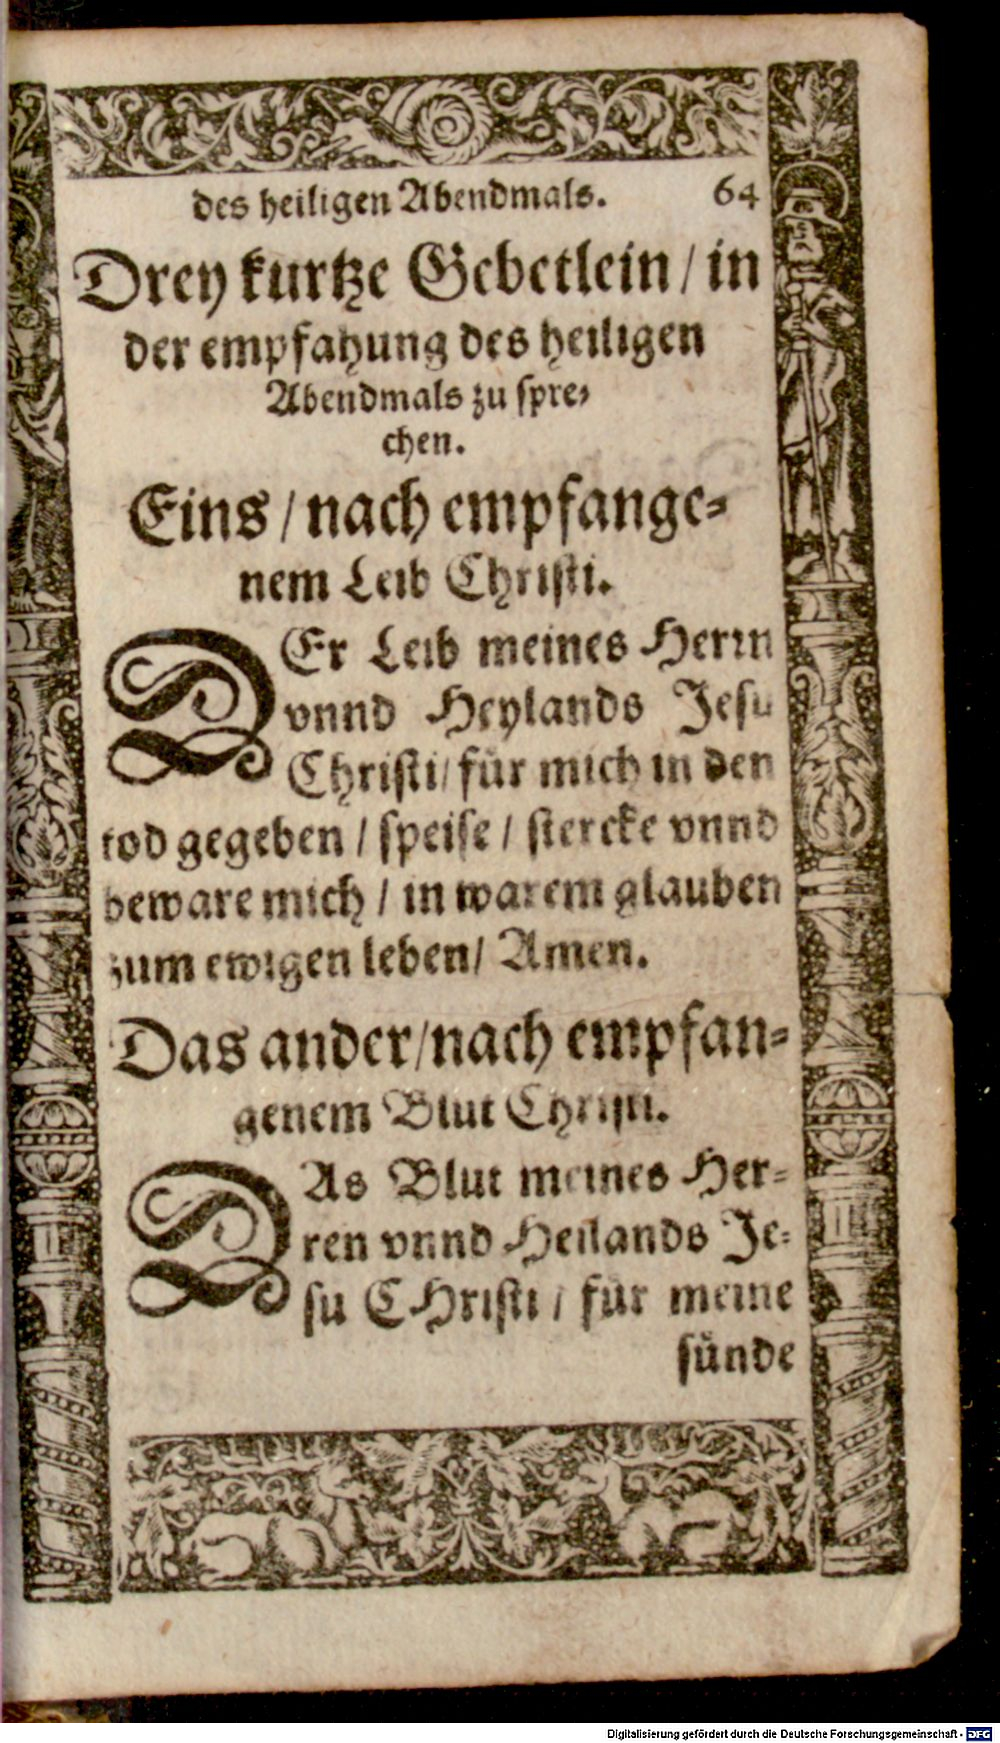 des heiligen Abendmals. 64
Drey kurtze Gebetlein / in
der empfahung des heiligen
Abendmals zu spre-
chen.
Eins / nach empfange-
nem Leib Christi.
DEr Leib meines Herrn
vnnd Heylands Jesu
Christi / für mich in den
tod gegeben / speise / stercke vnnd
beware mich / in warem glauben
zum ewigen leben / Amen.
Das ander / nach empfan-
genem Blut Christi.
DAs Blut meines Her-
ren vnnd Heilands Je-
su CHristi / für meine
sünde
Digitalisierung gefördert durch die Deutsche Forschungsgemeinschaft - DFG